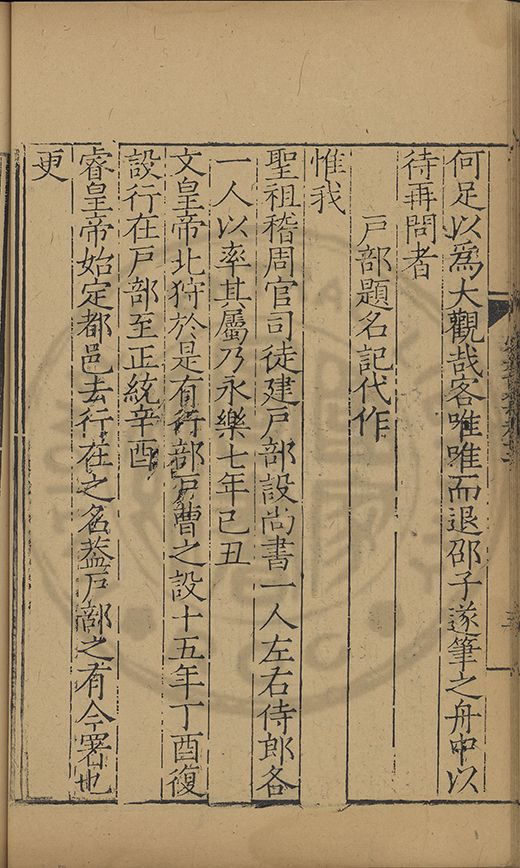 何足以爲大觀哉客唯唯而退邵子遂筆之舟中以
待再問者
戸部題名記代作
惟我
聖祖稽周官司徒建戸部設尚書一人左右侍郎各
一人以率其屬乃永樂七年己丑
文皇帝北狩於是有行部戸曹之設十五年丁酉復
設行在戸部至正統辛酉
睿皇帝始定都邑去行在之名葢戸部之有今署也
更